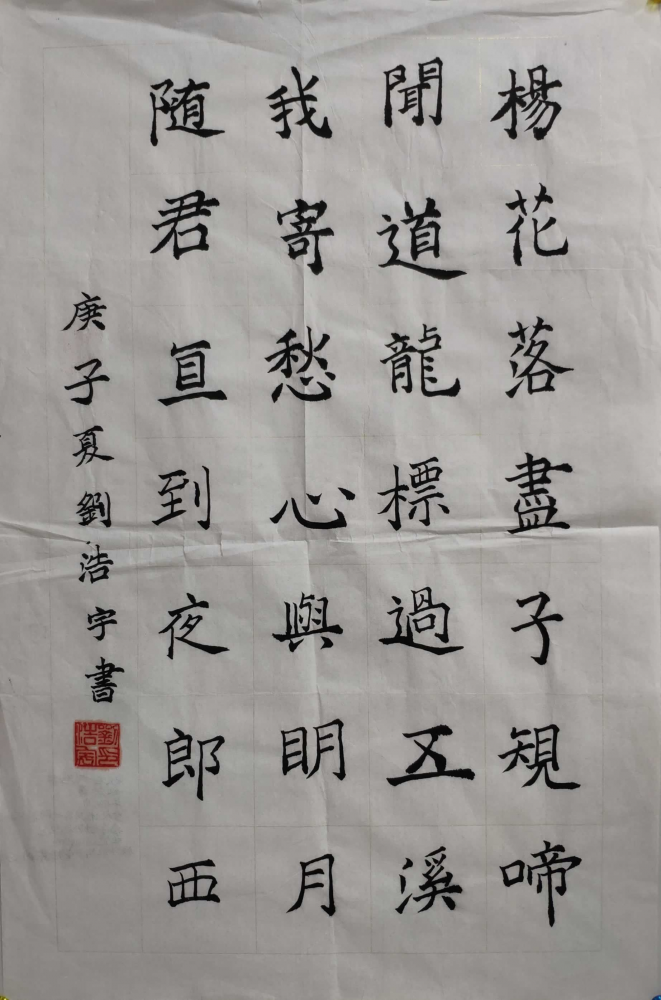 楊花落盡子規啼
聞道龍標過五溪
我寄愁心與明月
随君直到夜郎西
庚子夏劉浩宇書